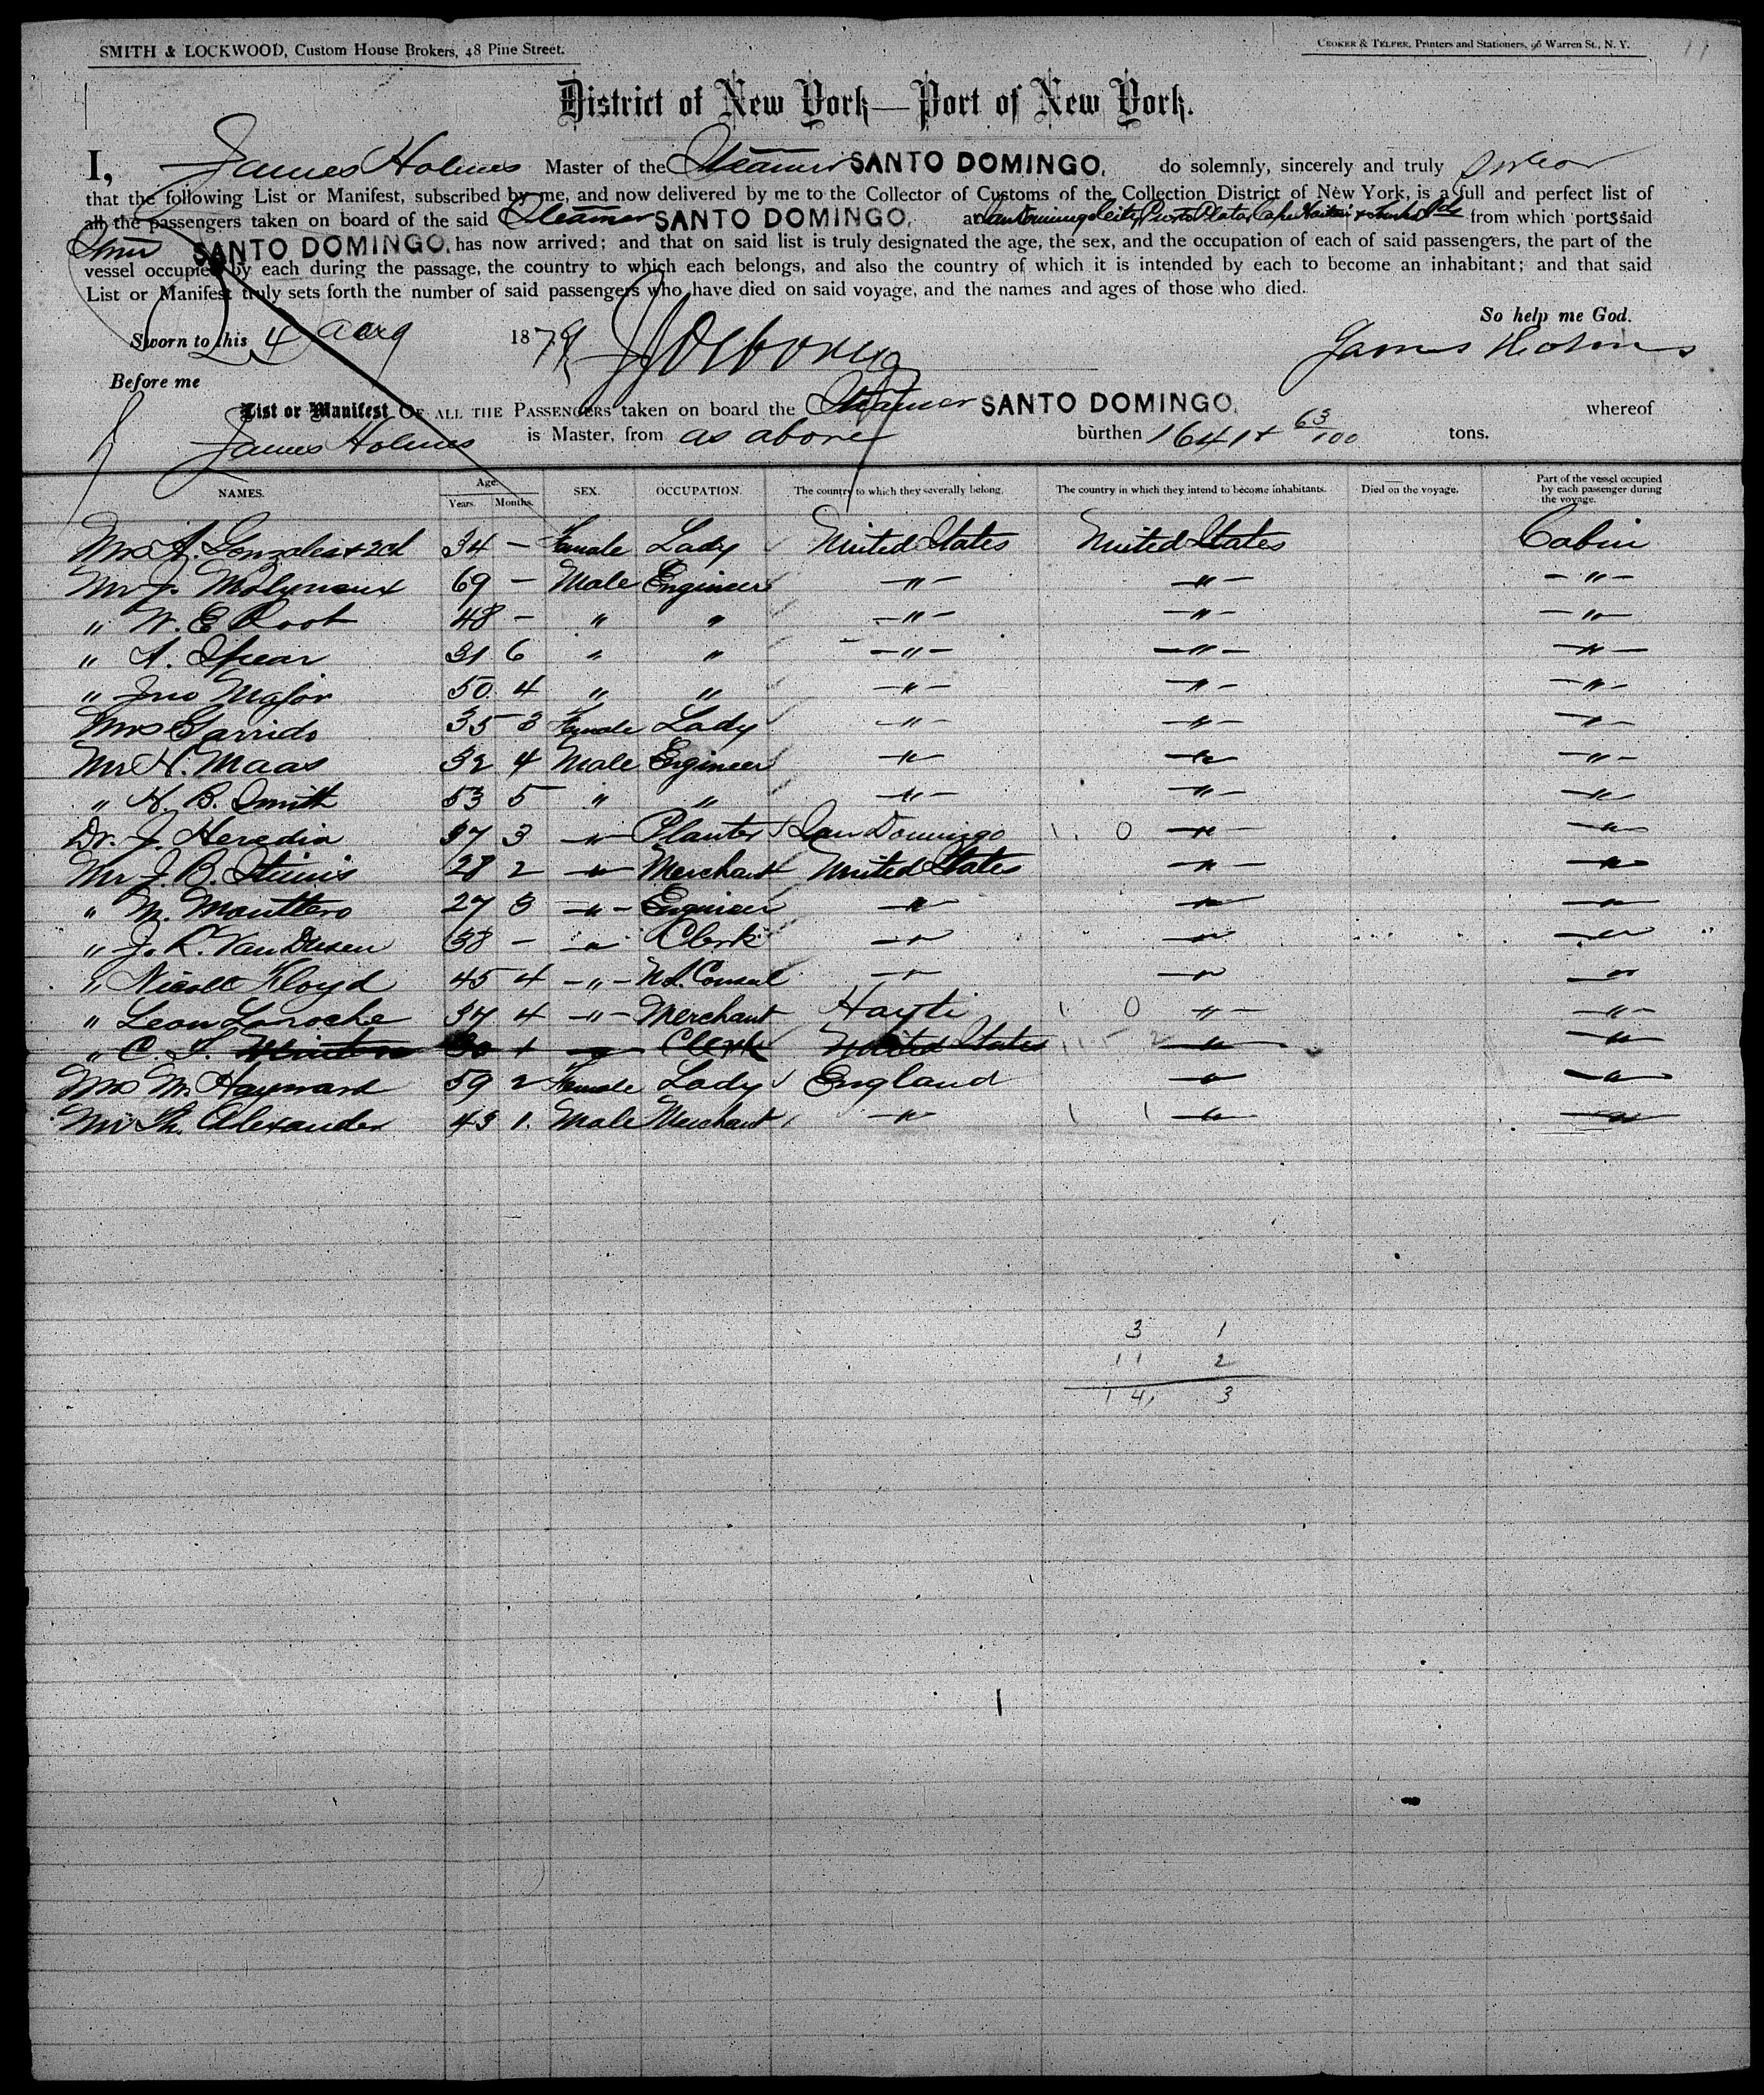 SMITH & LOCKWOOD, Custom House Brokers, 48 Pine Street.
CROKER & TELFER, Printers and Stationers, 96 Warren St., N. Y.
District of New York—Port of New York.
I, James Holmes Master of the Steamer SANTO DOMINGO, do solemnly, sincerely and truly swear
that the following List or Manifest, subscribed by me, and now delivered by me to the Collector of Customs of the Collection District of New York, is a full and perfect list of
all the passengers taken on board of the said Steamer SANTO DOMINGO, at San Domingo City, Puerto Plata, Cape Haitien & Turks Ids from which ports said
Stmr SANTO DOMINGO, has now arrived; and that on said list is truly designated the age, the sex, and the occupation of each of said passengers, the part of the
vessel occupied by each during the passage, the country to which each belongs, and also the country of which it is intended by each to become an inhabitant; and that said
List or Manifest truly sets forth the number of said passengers who have died on said voyage, and the names and ages of those who died.
So help me God.
Sworn to this 4 Aug 1879 James Holmes
Before me
List or Manifest OF ALL THE PASSENGERS taken on board the Steamer SANTO DOMINGO, whereof
James Holmes is Master, from as above burthen 1641 + 63/100 tons.
NAMES. Age. Years. Months. SEX. OCCUPATION. The country to which they severally belong. The country in which they intend to become inhabitants. Died on the voyage. Part of the vessel occupied by each passenger during the voyage.
Mrs A. Gonzales + 2 ch 34 – Female Lady United States United States Cabin
Mr J. Molyneux 69 – Male Engineer –"– –"– –"–
" W. E. Root 48 – " " –"– –"– –"–
" A. Spear 31 6 " " –"– –"– –"–
" Jno Major 50 4 " " –"– –"– –"–
Mrs Garrido 35 3 Female Lady –"– –"– –"–
Mr H. Maas 32 4 Male Engineer –"– –"– –"–
" H. B. Smith 53 5 " " –"– –"– –"–
Dr. J. Heredia 37 3 –"– Planter San Domingo 1. 0 –"– –"–
Mr J. B. 28 2 –"– Merchant United States –"– –"–
" M. 27 3 –"– Engineer –"– –"– –"–
" J. R. Van Dusen 38 – –"– Clerk –"– –"– –"–
" Nicoll Floyd 45 4 –"– U.S. Consul –"– –"– –"–
" Leon Laroche 37 4 –"– Merchant Hayti 1 0 –"– –"–
" C. 30 1 –"– Clerk United States –"– –"–
Mrs M. Hayward 59 2 Female Lady England –"– –"–
Mr Th. Alexander 43 1. Male Merchant –"– 1 1 –"– –"–
3 1
11 2
14, 3